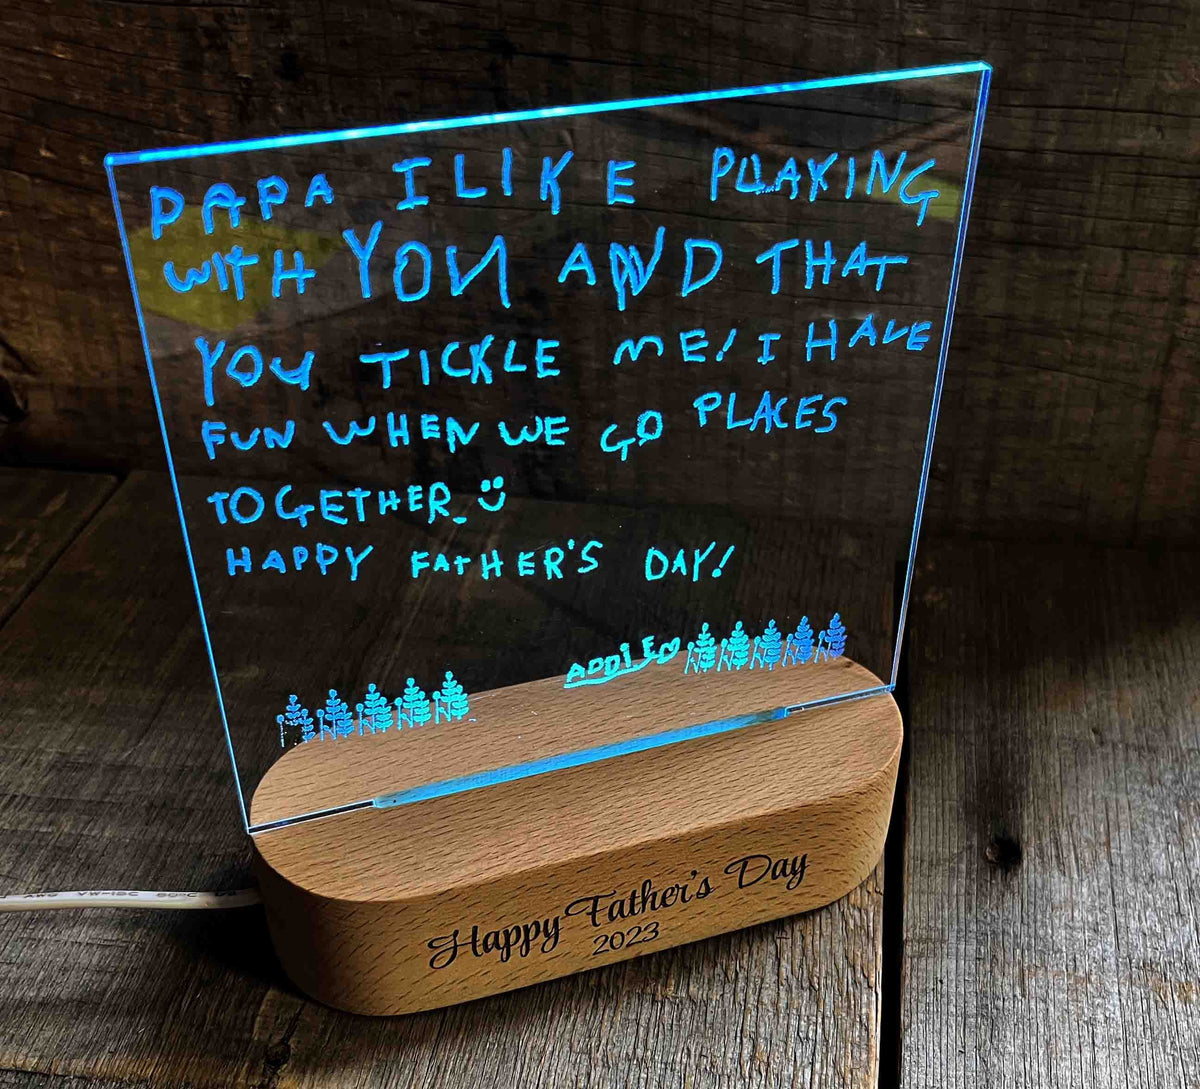 PAPA I LIKE PLAYING
WITH YOU AND THAT
YOU TICKLE ME! I HAVE
FUN WHEN WE GO PLACES
TOGETHER.
HAPPY FATHER'S DAY!
Happy Father's Day
2023